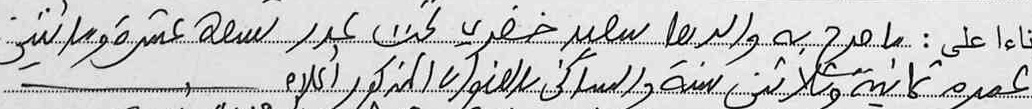 بناءا على : ما صرح به والدها سعيد خضري تحت عدد تسعة عشرة ومائتين
عمره ثمانية وثلاثين سنة والساكن بالعنوان المذكور أعلاه